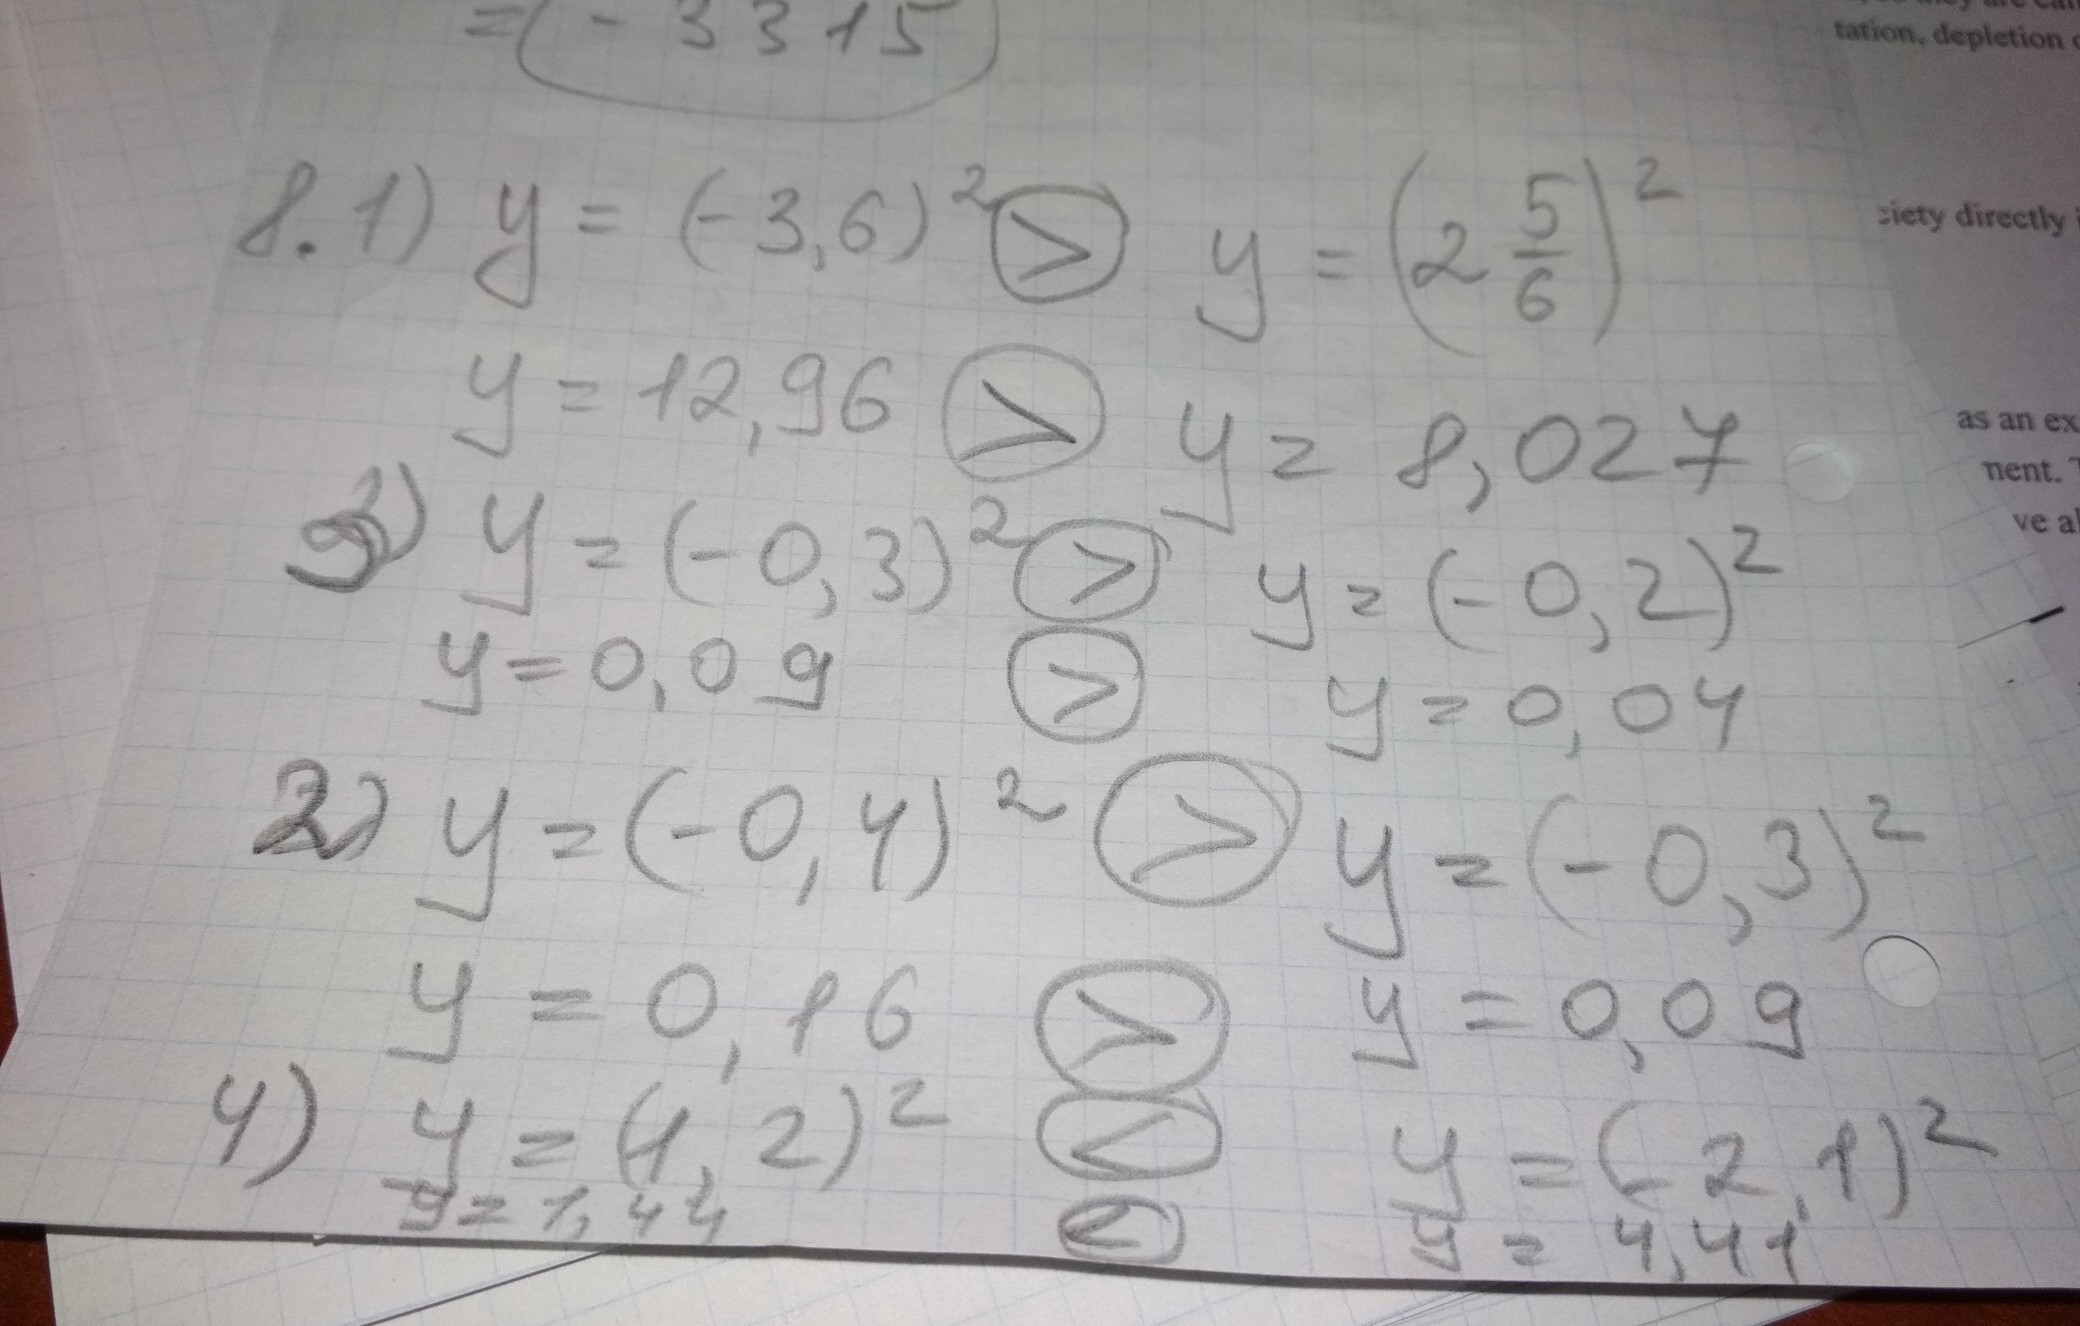 = (-3315)
tation, depletion
8.1) y = (-3,6)² > y = (2 5/6)²
ciety directly
y = 12,96 > y = 8,027
as an ex
nent.
ve al
3) y = (-0,3)² > y = (-0,2)²
y = 0,09 > y = 0,04
2) y = (-0,4)² > y = (-0,3)²
y = 0,16 > y = 0,09
4) y = (1,2)² < y = (-2,1)²
y = 1,44 < y = 4,41